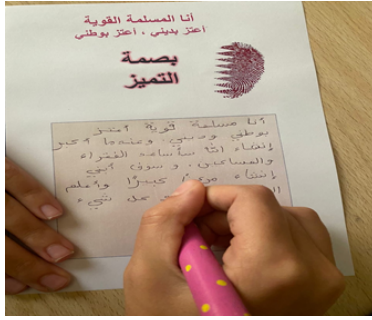 أنا المسلمة القوية
أعتز بديني ، أعتز بوطني
بصمة
التميز
أنا مسلمة قوية أعتز
بوطني وديني، وعندما أكبر
إنشاء الله سأساعد الفقراء
والمساكين، وسوف أبني
إنشاء كبيرًا وأعلم
كل شيء